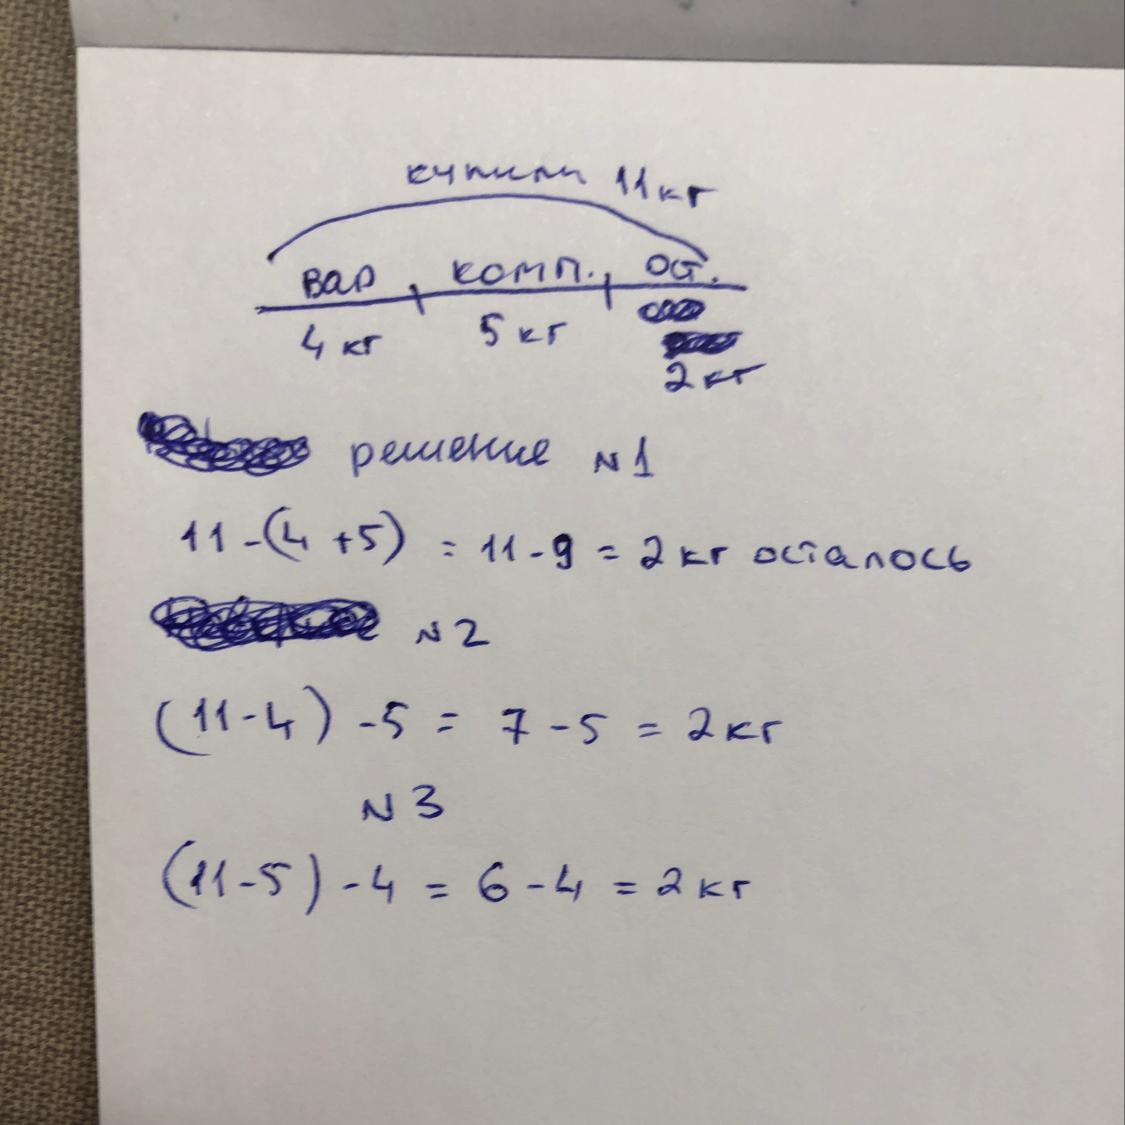 купили 11кг
вар комп. ост.
4 кг 5 кг
2 кг
решение N1
11-(4+5) = 11-9 = 2 кг осталось
N2
(11-4) -5 = 7-5 = 2 кг
N3
(11-5) -4 = 6-4 = 2 кг